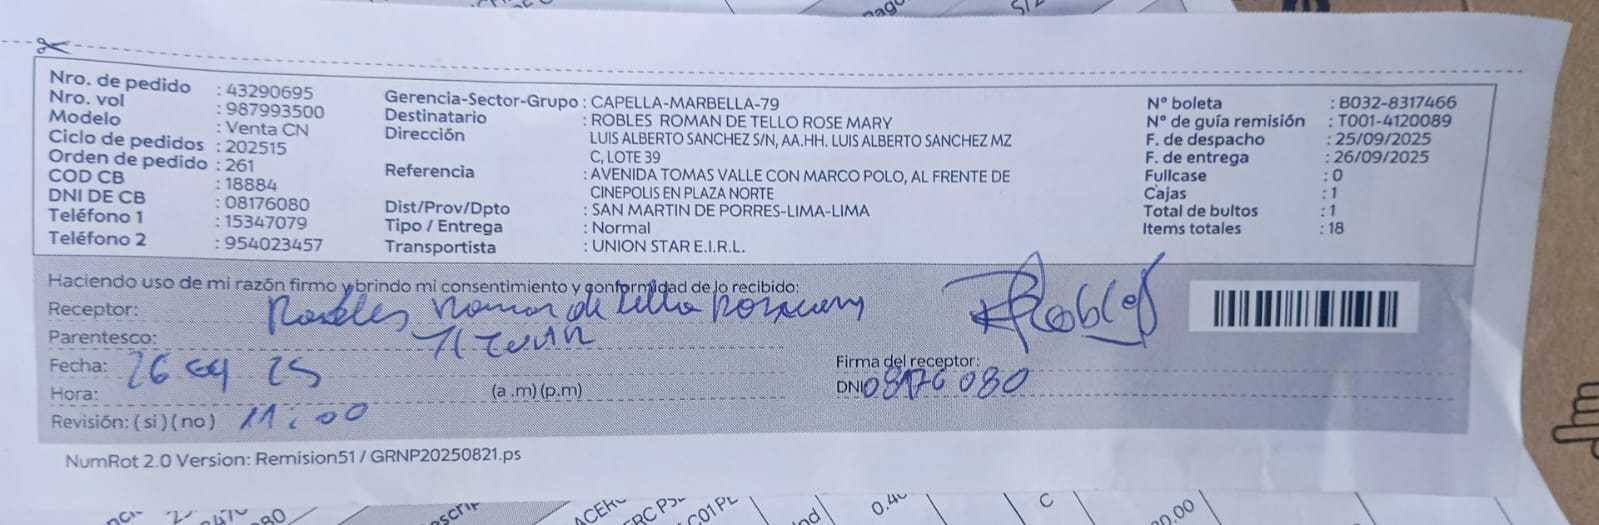 Nro. de pedido : 43290695
Nro. vol : 987993500
Modelo : Venta CN
Ciclo de pedidos : 202515
Orden de pedido : 261
COD CB : 18884
DNI DE CB : 08176080
Teléfono 1 : 15347079
Teléfono 2 : 954023457
Gerencia-Sector-Grupo : CAPELLA-MARBELLA-79
Destinatario : ROBLES ROMAN DE TELLO ROSE MARY
Dirección LUIS ALBERTO SANCHEZ S/N, AA.HH. LUIS ALBERTO SANCHEZ MZ
C, LOTE 39
Referencia : AVENIDA TOMAS VALLE CON MARCO POLO, AL FRENTE DE
CINEPOLIS EN PLAZA NORTE
Dist/Prov/Dpto : SAN MARTIN DE PORRES-LIMA-LIMA
Tipo / Entrega : Normal
Transportista : UNION STAR E.I.R.L.
N° boleta : B032-8317466
N° de guía remisión : T001-4120089
F. de despacho : 25/09/2025
F. de entrega : 26/09/2025
Fullcase : 0
Cajas : 1
Total de bultos : 1
Items totales : 18
Haciendo uso de mi razón firmo y brindo mi consentimiento y conformidad de lo recibido:
Receptor: Robles Roman de Tello
Parentesco:
Fecha: 26 25
Hora: (a .m) (p.m)
Revisión: ( si ) ( no ) 11:00
Robles
Firma del receptor:
DNI 08176080
NumRot 2.0 Version: Remision51 / GRNP20250821.ps